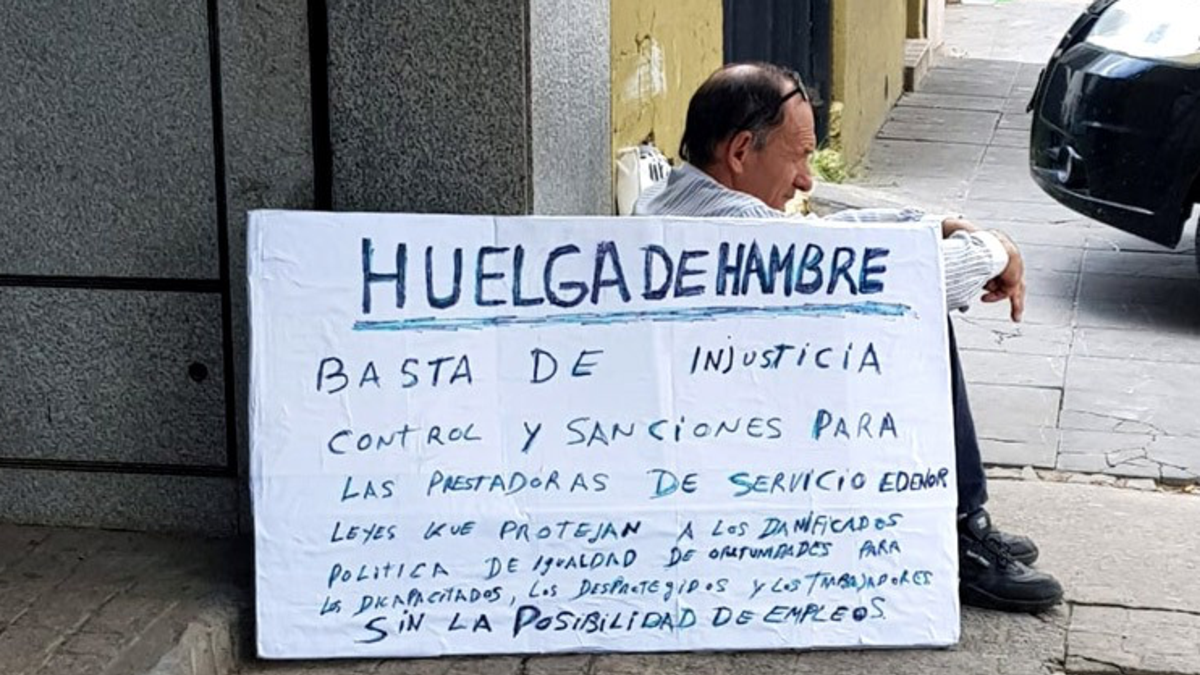 HUELGA DE HAMBRE
BASTA DE INJUSTICIA
CONTROL Y SANCIONES PARA
LAS PRESTADORAS DE SERVICIO EDENOR
LEYES KUE PROTEJAN A LOS DANIFICADOS
POLITICA DE IGUALDAD DE OPORTUNIDADES PARA
LOS DICAPACITADOS, LOS DESPROTEGIDOS Y LOS TRABAJADORES
SIN LA POSIBILIDAD DE EMPLEOS.